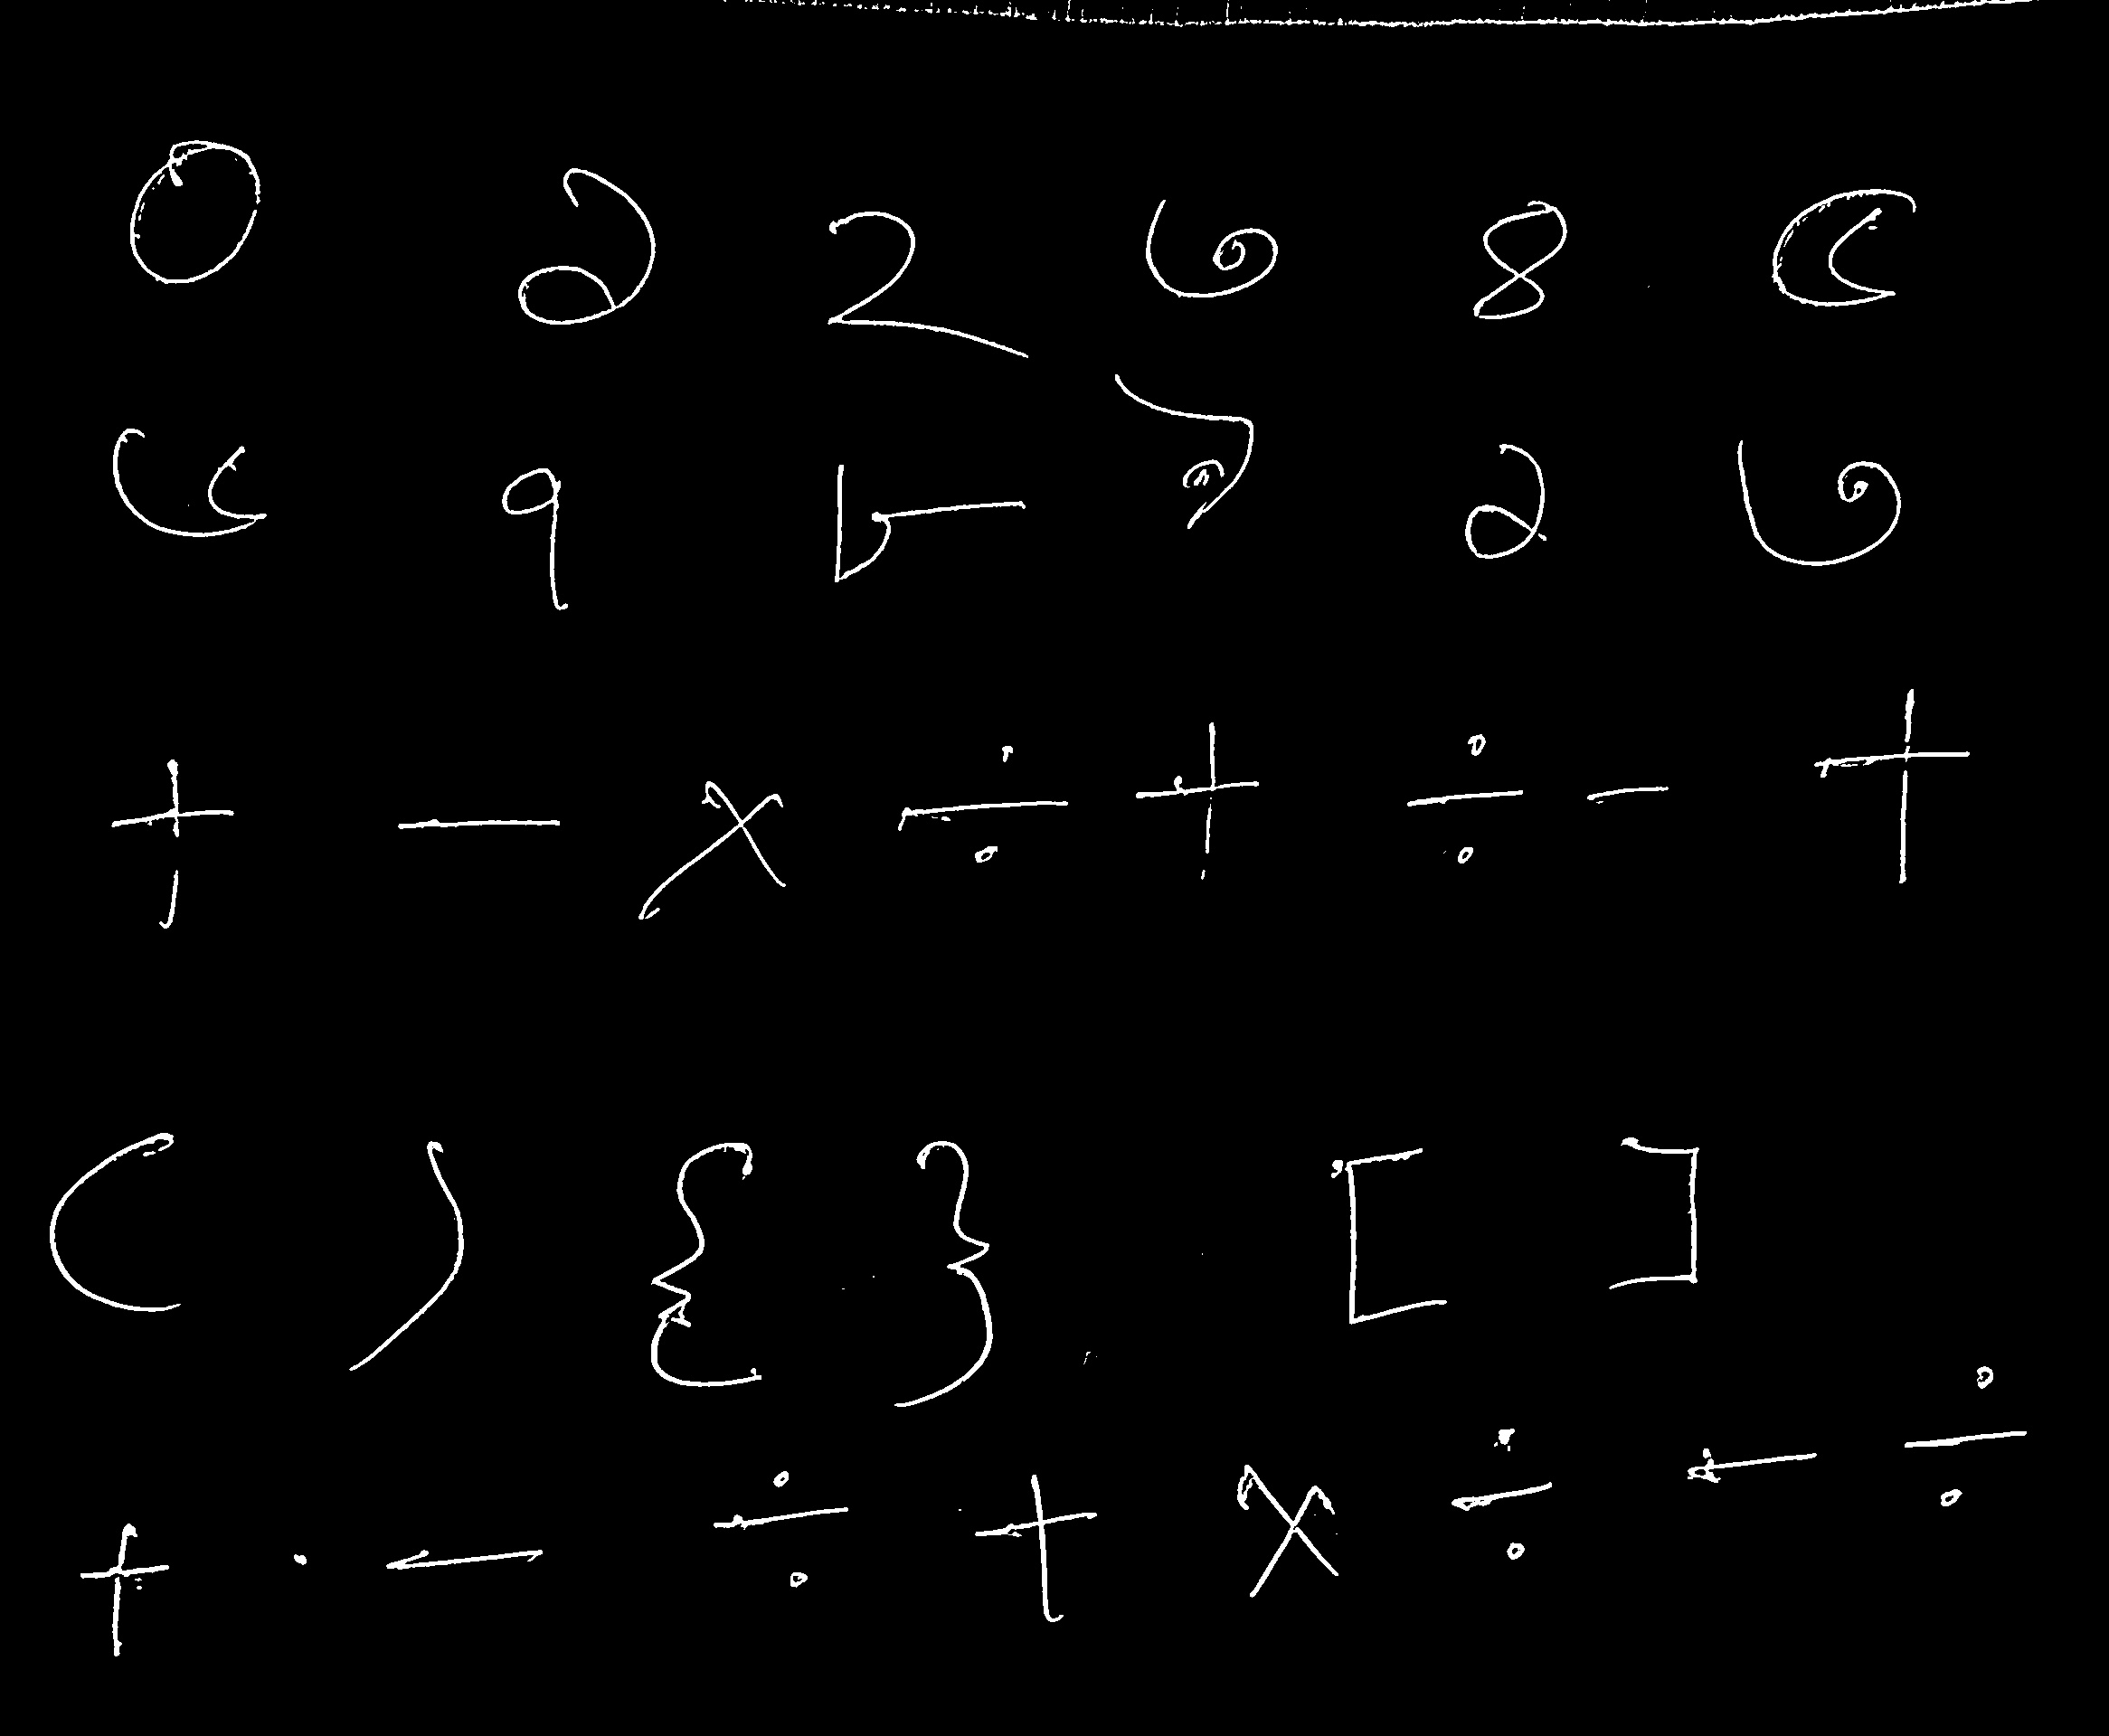 ০ ১ ২ ৩ ৪ ৫
৬ ৭ ৮ ৯ ১ ৩
+ − × ÷ + ÷ − +
( ) { } [ ]
+ . − ÷ + × ÷ − ÷